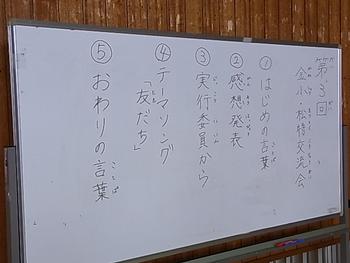 第3回
金小・松特交流会
①はじめの言葉
②感想発表
③実行委員から
④テーマソング
「友だち」
⑤おわりの言葉